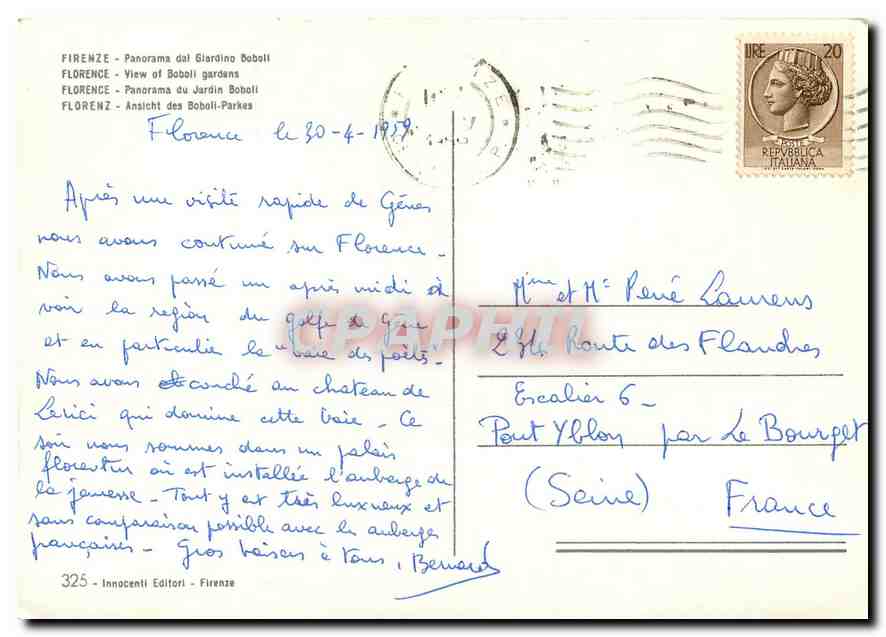 FIRENZE - Panorama dal Giardino Boboli
FLORENCE - View of Boboli gardens
FLORENCE - Panorama du Jardin Boboli
FLORENZ - Ansicht des Boboli-Parkes
Florence le 30-4-1959
Après une visite rapide de Gênes
nous avons continué sur Florence.
Nous avons passé un après midi à
voir la région du golfe de Gène
et en particulier la "baie des poètes".
Nous avons couché au chateau de
Lerici qui domine cette baie. Ce
soir nous sommes dans un palais
florentin où est installée l'auberge de
la jeunesse. Tout y est très luxueux et
sans comparaison possible avec les auberges
françaises. Gros baisers à tous, Bernard
325 - Innocenti Editori - Firenze
LIRE 20
POSTE
REPVBBLICA
ITALIANA
Mme et Mr René Laurens
234 Route des Flandres
Escalier 6.
Pont Yblon par Le Bourget
(Seine) France
CPAPHIL